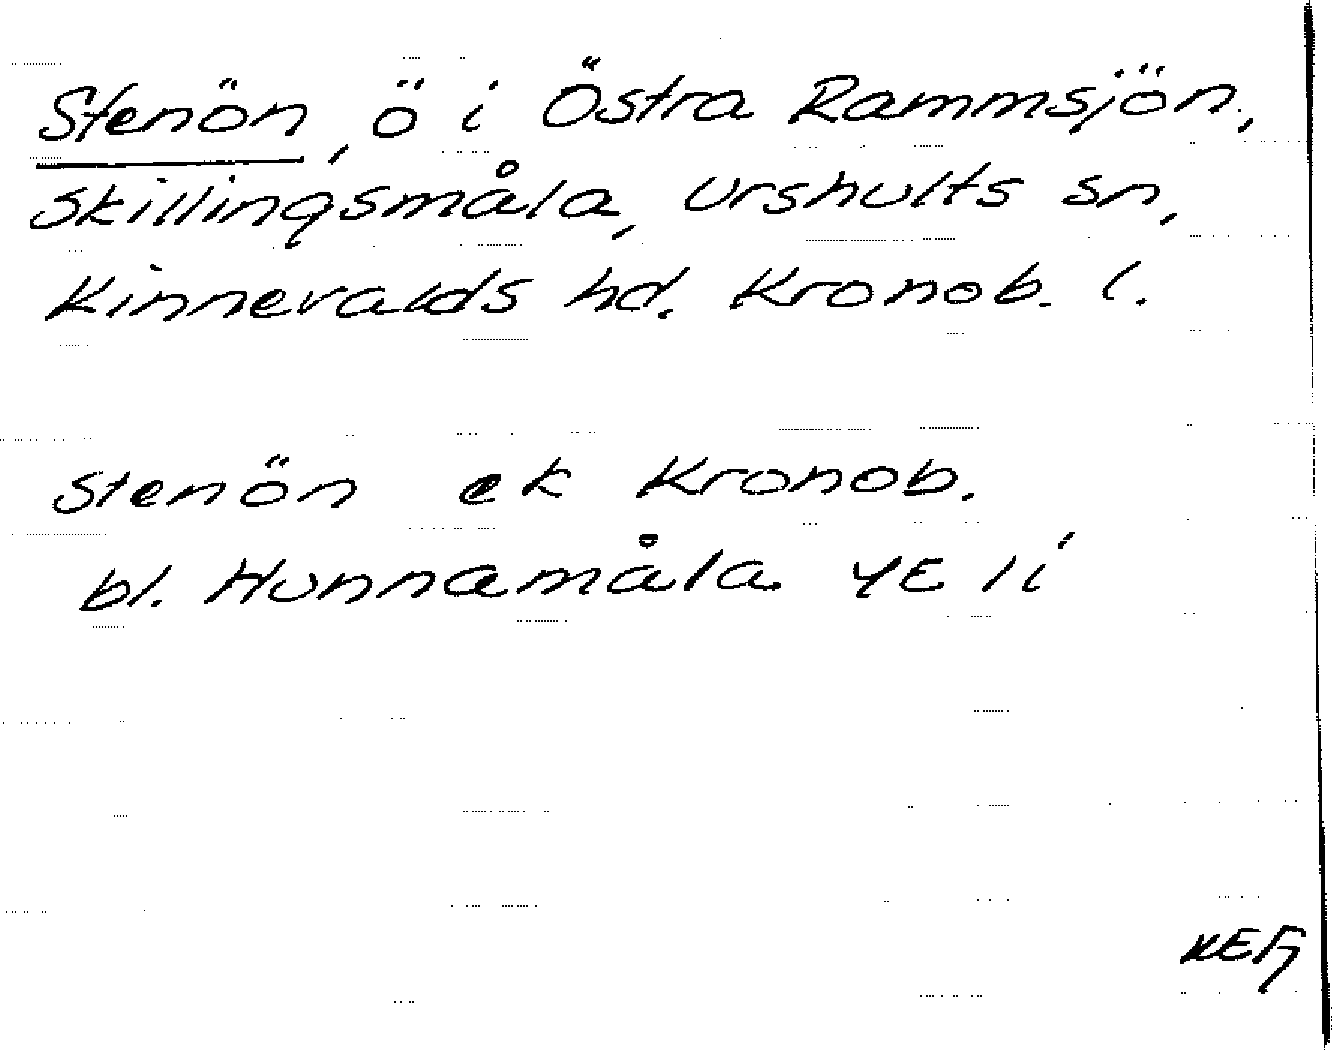 Stenön, ö i Östra Rammsjön,
Skillingsmåla, Urshults sn,
Kinnevalds hd. Kronob. l.
Stenön ek Kronob.
bl. Hunnamåla 4E 1i